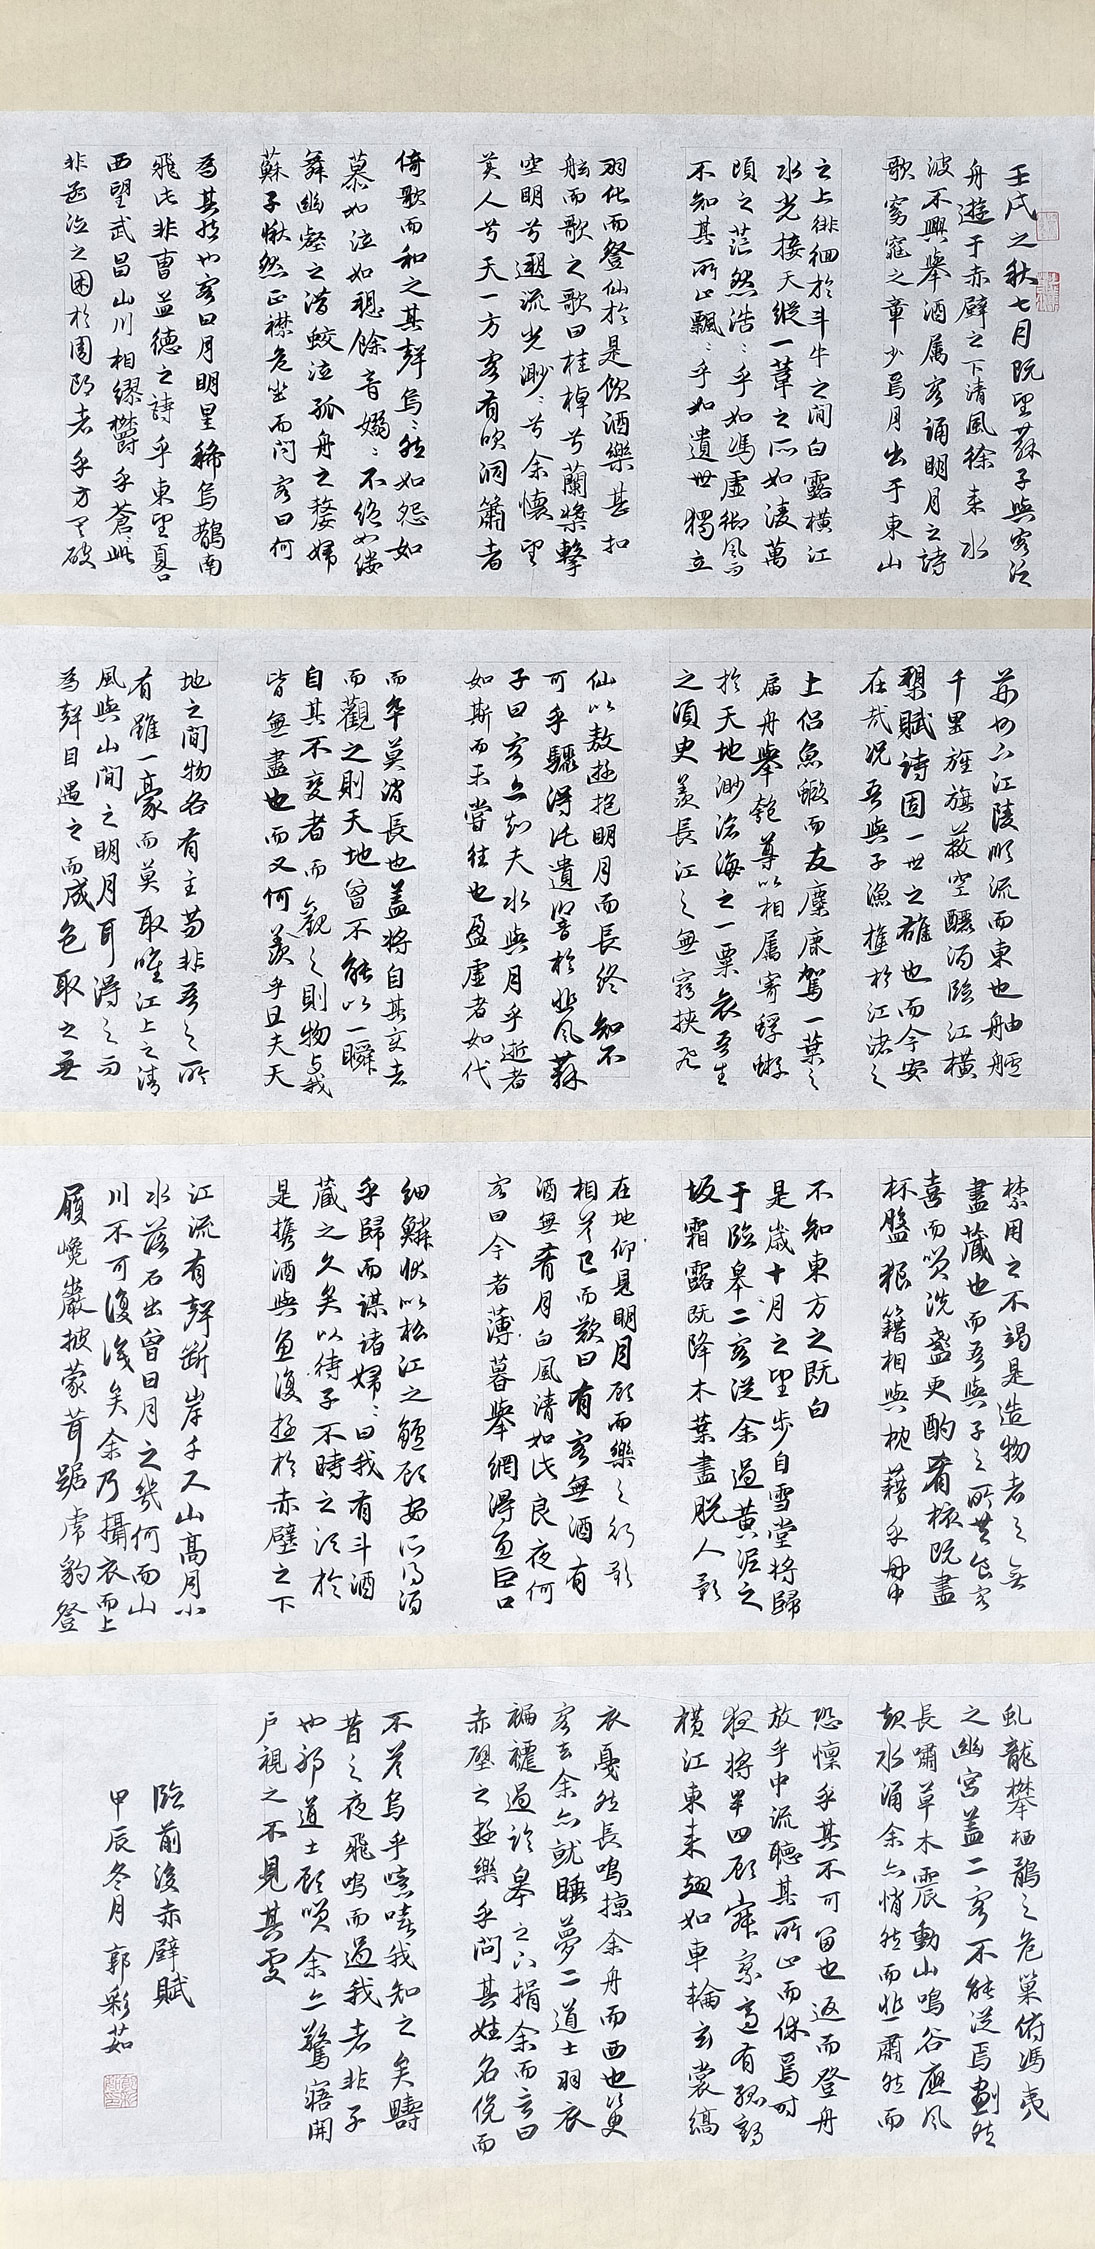 壬戌之秋七月既望蘇子與客泛
舟遊于赤壁之下清風徐来水
波不興舉酒属客誦明月之詩
歌窈窕之章少焉月出于東山
之上徘徊於斗牛之間白露橫江
水光接天縱一葦之所如淩萬
頃之茫然浩〻乎如馮虛御風而
不知其所止飄〻乎如遺世獨立
羽化而登仙於是飲酒樂甚扣
舷而歌之歌曰桂棹兮蘭槳擊
空明兮遡流光渺〻兮余懷望
美人兮天一方客有吹洞簫者
倚歌而和之其聲烏〻然如怨如
慕如泣如慬餘音嫋〻不絕如縷
舞幽壑之潛蛟泣孤舟之嫠婦
蘇子愀然正襟危坐而問客曰何
為其然也客曰月明星稀烏鵲南
飛此非曹孟德之詩乎東望夏口
西望武昌山川相繆欝乎蒼〻此
非孟德之困於周郎者乎方其破
荊州下江陵順流而東也舳艫
千里旌旗蔽空釃酒臨江橫
槊賦詩固一世之雄也而今安
在哉況吾與子漁樵於江渚之
上侶魚鰕而友麋鹿駕一葉之
扁舟舉匏尊以相属寄蜉蝣
於天地渺滄海之一粟哀吾生
之須臾羨長江之無窮挾飛
仙以敖遊抱明月而長終知不
可乎驟得託遺響於悲風蘇
子曰客亦知夫水與月乎逝者
如斯而未嘗往也盈虛者如代
而卒莫消長也蓋將自其變者
而觀之則天地曾不能以一瞬
自其不變者而觀之則物與我
皆無盡也而又何羨乎且夫天
地之間物各有主苟非吾之所
有雖一豪而莫取唯江上之清
風與山間之明月耳得之而
為聲目遇之而成色取之無
禁用之不竭是造物者之無
盡藏也而吾與子之所共食客
喜而笑洗盞更酌肴核既盡
杯盤狼籍相與枕藉乎舟中
不知東方之既白
是歲十月之望步自雪堂將歸
于臨皋二客從余過黃泥之
坂霜露既降木葉盡脫人影
在地仰見明月顧而樂之行歌
相答已而歎曰有客無酒有
酒無肴月白風清如此良夜何
客曰今者薄暮舉網得魚巨口
細鱗狀似松江之鱸顧安所得酒
乎歸而謀諸婦〻曰我有斗酒
藏之久矣以待子不時之須於
是攜酒與魚復遊於赤壁之下
江流有聲斷岸千尺山高月小
水落石出曾日月之幾何而山
川不可復識矣余乃攝衣而上
履巉巖披蒙茸踞虎豹登
虬龍攀栖鶻之危巢俯馮夷
之幽宮蓋二客不能從焉劃然
長嘯草木震動山鳴谷應風
起水涌余亦悄然而悲肅然而
恐懍乎其不可留也返而登舟
放乎中流聽其所止而休焉時
夜將半四顧寂寥適有孤鶴
橫江東来翅如車輪玄裳縞
衣戛然長鳴掠余舟而西也須臾
客去余亦就睡夢二道士羽衣
褊褼過臨皋之下揖余而言曰
赤壁之遊樂乎問其姓名俛而
不答烏乎噫嘻我知之矣疇
昔之夜飛鳴而過我者非子
也耶道士顧笑余亦驚寤開
戶視之不見其處
臨前後赤壁賦
甲辰冬月郭彩茹